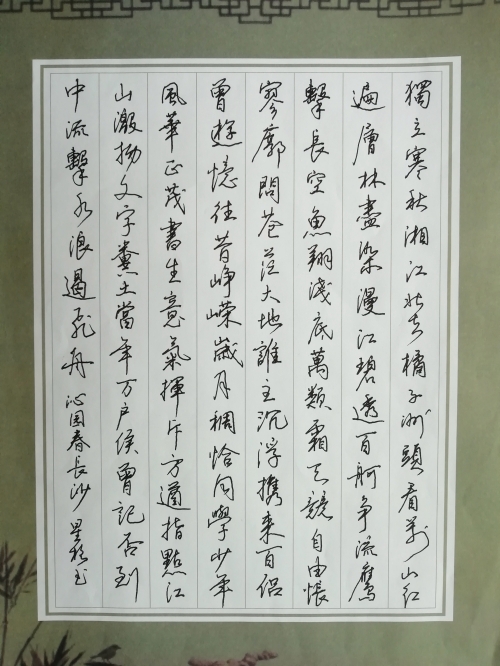 獨立寒秋湘江北去橘子洲頭看萬山紅
遍層林盡染漫江碧透百舸争流鷹
擊長空魚翔淺底萬類霜天競自由悵
寥廓問蒼茫大地誰主沉浮携來百侶
曾遊憶往昔崢嶸歲月稠恰同學少年
風華正茂書生意氣揮斥方遒指點江
山激揚文字糞土當年万户侯曾記否到
中流擊水浪遏飛舟 沁园春長沙